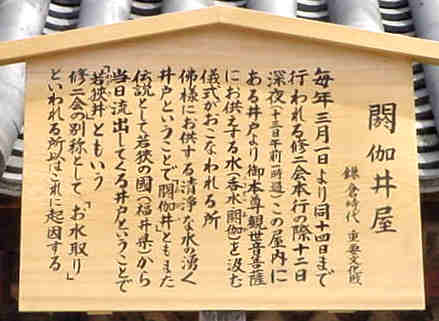 閼伽井屋
鎌倉時代 重要文化財
毎年三月一日より同十四日まで
行われる修二会本行の際十二日
深夜(十三日午前一時過)この屋内に
ある井戸より御本尊観世音菩薩
にお供えする水(香水閼伽)を汲む
儀式がおこなわれる所
佛様にお供する清浄な水の湧く
井戸ということで閼伽井ともまた
伝説として若狭の國(福井県)から
当日流出してくる井戸ということで
「若狭井」ともいう
修二会の別称として「お水取り」
といわれる所以はこれに起因する